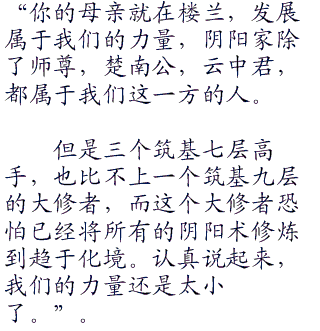 “你的母亲就在楼兰，发展
属于我们的力量，阴阳家除
了师尊，楚南公，云中君，
都属于我们这一方的人。
但是三个筑基七层高
手，也比不上一个筑基九层
的大修者，而这个大修者恐
怕已经将所有的阴阳术修炼
到趋于化境。认真说起来，
我们的力量还是太小
了。”。